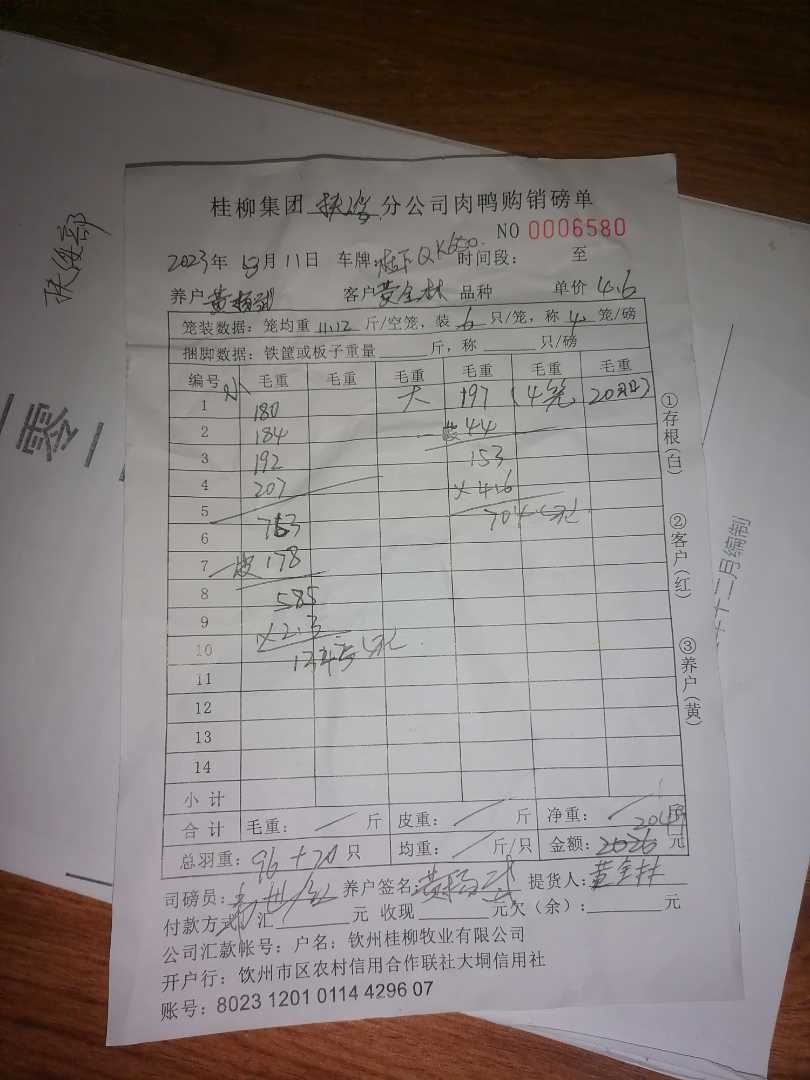 桂柳集团 扶绥 分公司肉鸭购销磅单
NO 0006580
2023年 月11日 车牌: QK650 时间段: 至
养户 黄 客户 黄全林 品种 单价 4.6
笼装数据: 笼均重 11.12 斤/空笼, 装 6 只/笼, 称 4 笼/磅
捆脚数据: 铁筐或板子重量 斤, 称 只/磅
编号 毛重 毛重 毛重 毛重 毛重 毛重
1 180 大 197 (4笼 20只)
2 184 皮44
3 192 153
4 207 ×4.6
5 704元
6 763
7 一皮178
8 585
9 ×2.3
10 元
11
12
13
14
小计
合计 毛重: / 斤 皮重: / 斤 净重: / 斤
总羽重: 96+20 只 均重: / 斤/只 金额: 元
司磅员: 养户签名: 黄 提货人: 黄全林
付款方式 汇 元 收现 元欠(余): 元
公司汇款帐号: 户名: 钦州桂柳牧业有限公司
开户行: 钦州市区农村信用合作联社大垌信用社
账号: 8023 1201 0114 4296 07
①存根(白)
②客户(红)
③养户(黄)
扶绥部
零一
十二月编制